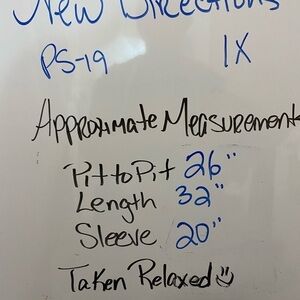 New Directions
PS-19 1X
Approximate Measurement
Pit to Pit 26"
Length 32"
Sleeve 20"
Taken Relaxed